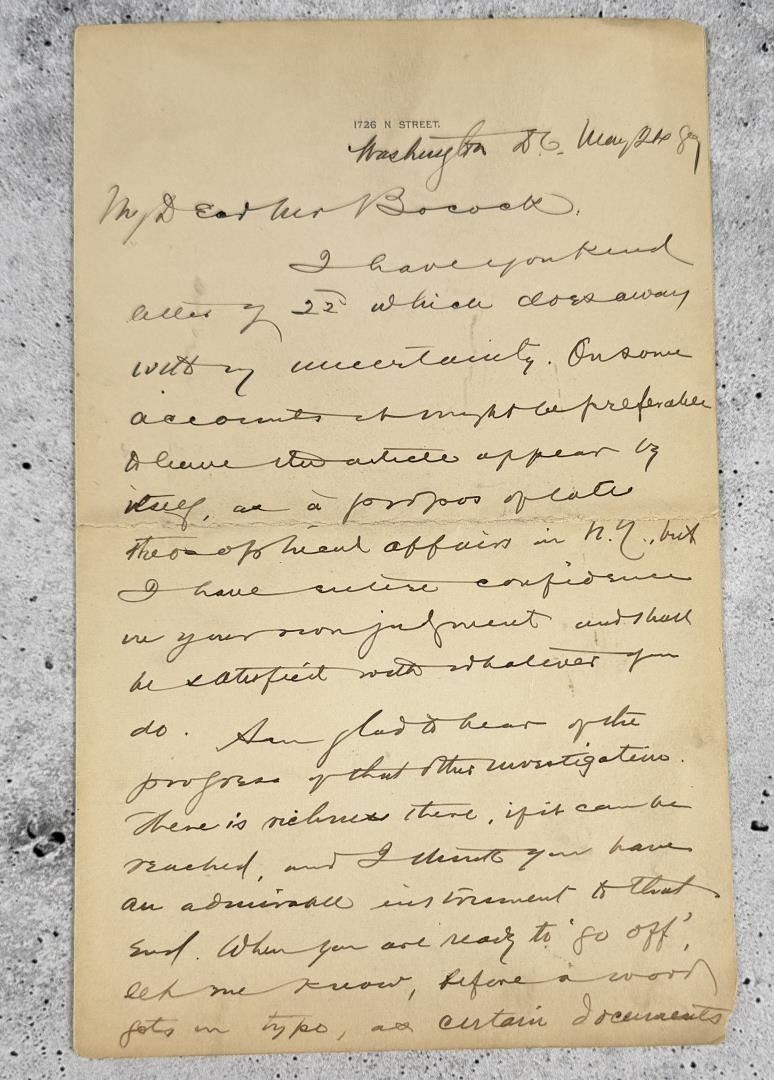 1726 N STREET.
Washington D.C. May 24 89
My Dear Mr Bocock.
I have your kind
letter of 22d which does away
with my uncertainty. On some
accounts it might be preferable
to leave the article appear by
itself, as à propos of late
theosophical affairs in N.Y., but
I have entire confidence
in your own judgment and shall
be satisfied with whatever you
do. Am glad to hear of the
progress of that other investigation.
There is richness there, if it can be
reached, and I think you have
an admirable instrument to that
end. When you are ready to 'go off',
let me know, before a word
gets in type, as certain documents